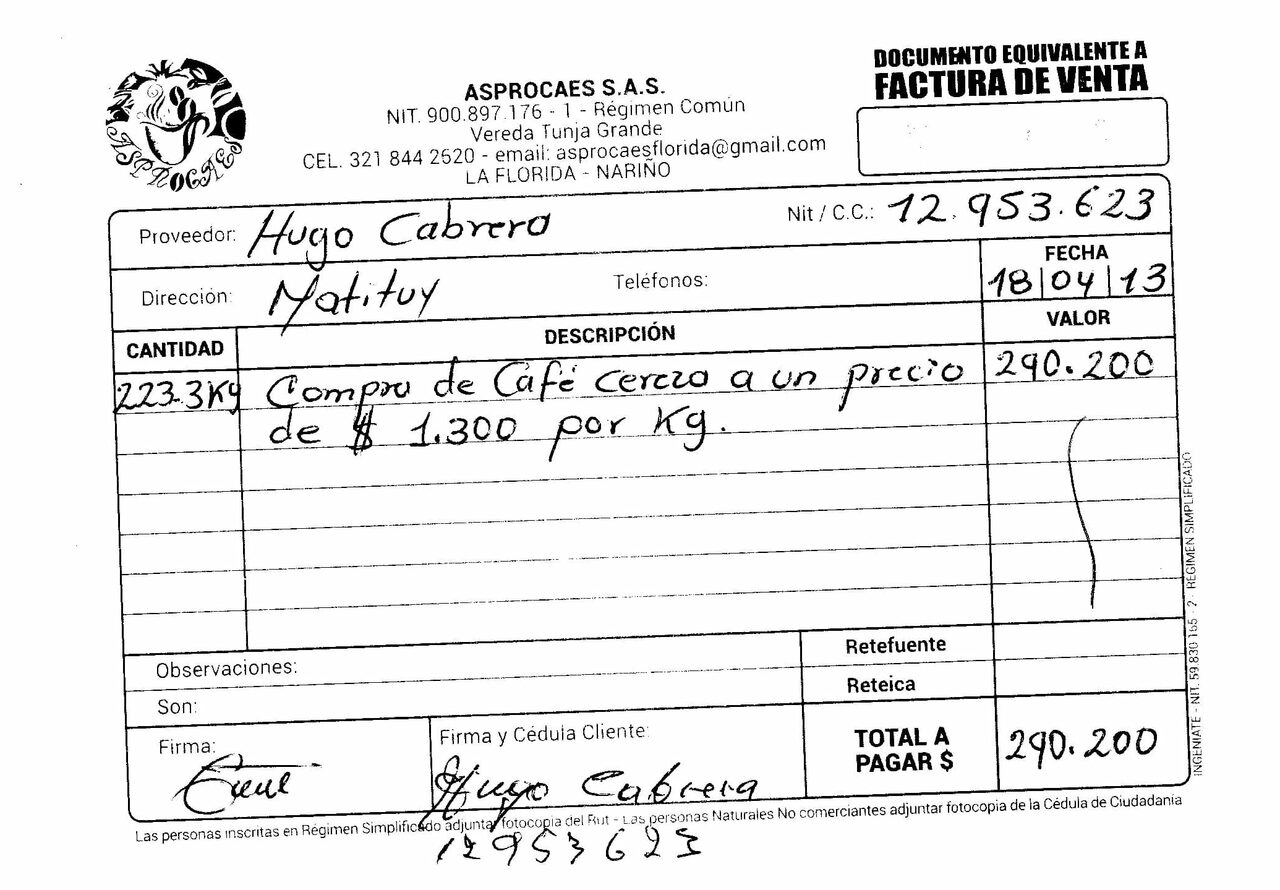 DOCUMENTO EQUIVALENTE A
FACTURA DE VENTA
ASPROCAES
ASPROCAES S.A.S.
NIT. 900.897.176 - 1 - Régimen Común
Vereda Tunja Grande
CEL. 321 844 2520 - email: asprocaesflorida@gmail.com
LA FLORIDA - NARIÑO
Proveedor: Hugo Cabrera Nit / C.C.: 12.953.623
Dirección: Matituy Teléfonos:
FECHA
18|04|13
CANTIDAD DESCRIPCIÓN VALOR
223.3Kg Compra de Café cereza a un precio 290.200
de $ 1.300 por Kg.
Observaciones: Retefuente
Son: Reteica
Firma: Firma y Cédula Cliente:
TOTAL A
PAGAR $ 290.200
Hugo Cabrera
Las personas inscritas en Régimen Simplificado adjuntar fotocopia del Rut - Las personas Naturales No comerciantes adjuntar fotocopia de la Cédula de Ciudadanía
12953623
INGENIATE - NIT. 59.830.165 - 2 - REGIMEN SIMPLIFICADO